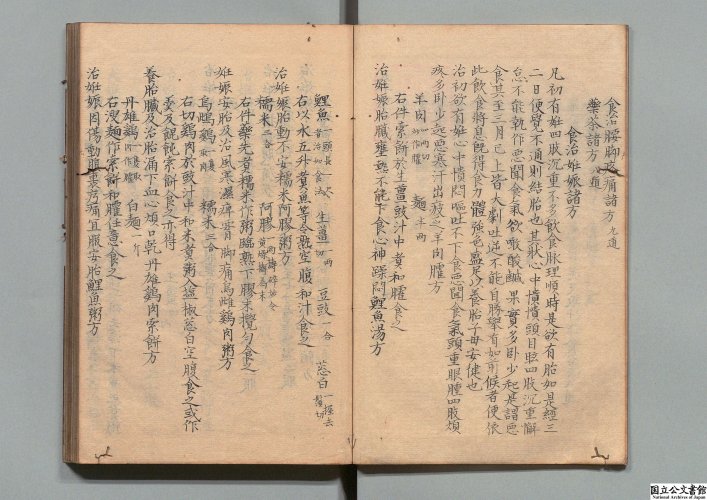 食治腰脚疼痛諸方 九道
藥茶諸方 八道
食治妊娠諸方
凡初有妊四肢沉重不多飲食脉理順時是欲有胎如是經三
二日便覺不通則結胎也其狀心中憒憒頭目眩四肢沉重懈
怠不能執作惡聞食氣欲噉酸鹹果實多卧少起是謂惡
食其至三月已上皆大劇吐逆不能自勝舉有如前候者便依
此飲食將息既得食力體強色盛足以養胎子母安健也
治初欲有妊心中憒悶嘔吐不下食惡聞食氣頭重眼𥉂四肢煩
疼多卧少起惡寒汗出疲乏羊肉臛方
羊肉 四兩切炒作臛 麵 半兩
右件索餅於生薑豉汁中煮和臛食之
治妊娠胎臟壅熱不能下食心神躁悶鯉魚湯方
鯉魚 一頭長一尺者治如食法 生薑 一兩 豆豉 一合 葱白 一握去鬚切
右以水五升煮魚等令熟空腹和汁食之
治妊娠胎動不安糯米阿膠粥方
糯米 三合 阿膠 一兩擣碎炒令黄燥擣爲末
右件藥先煮糯米作粥臨熟下膠末攪勻食之
妊娠安胎及治風寒濕痺腎脚痛烏雌鷄肉粥方
烏雌鷄 一隻取肉 糯米 三合
右切鷄肉於豉汁中和米煮粥入鹽椒葱白空腹食之或作
羹及餛飩索餅食之亦得
養胎臟及治胎漏下血心煩口乾丹雄鷄肉索餅方
丹雄鷄 一隻取肉作臛 白麵 一斤
右溲麵作索餅和臛任意食之
治妊娠因傷動腹裏疞痛宜服安胎鯉魚粥方
国立公文書館
National Archives of Japan